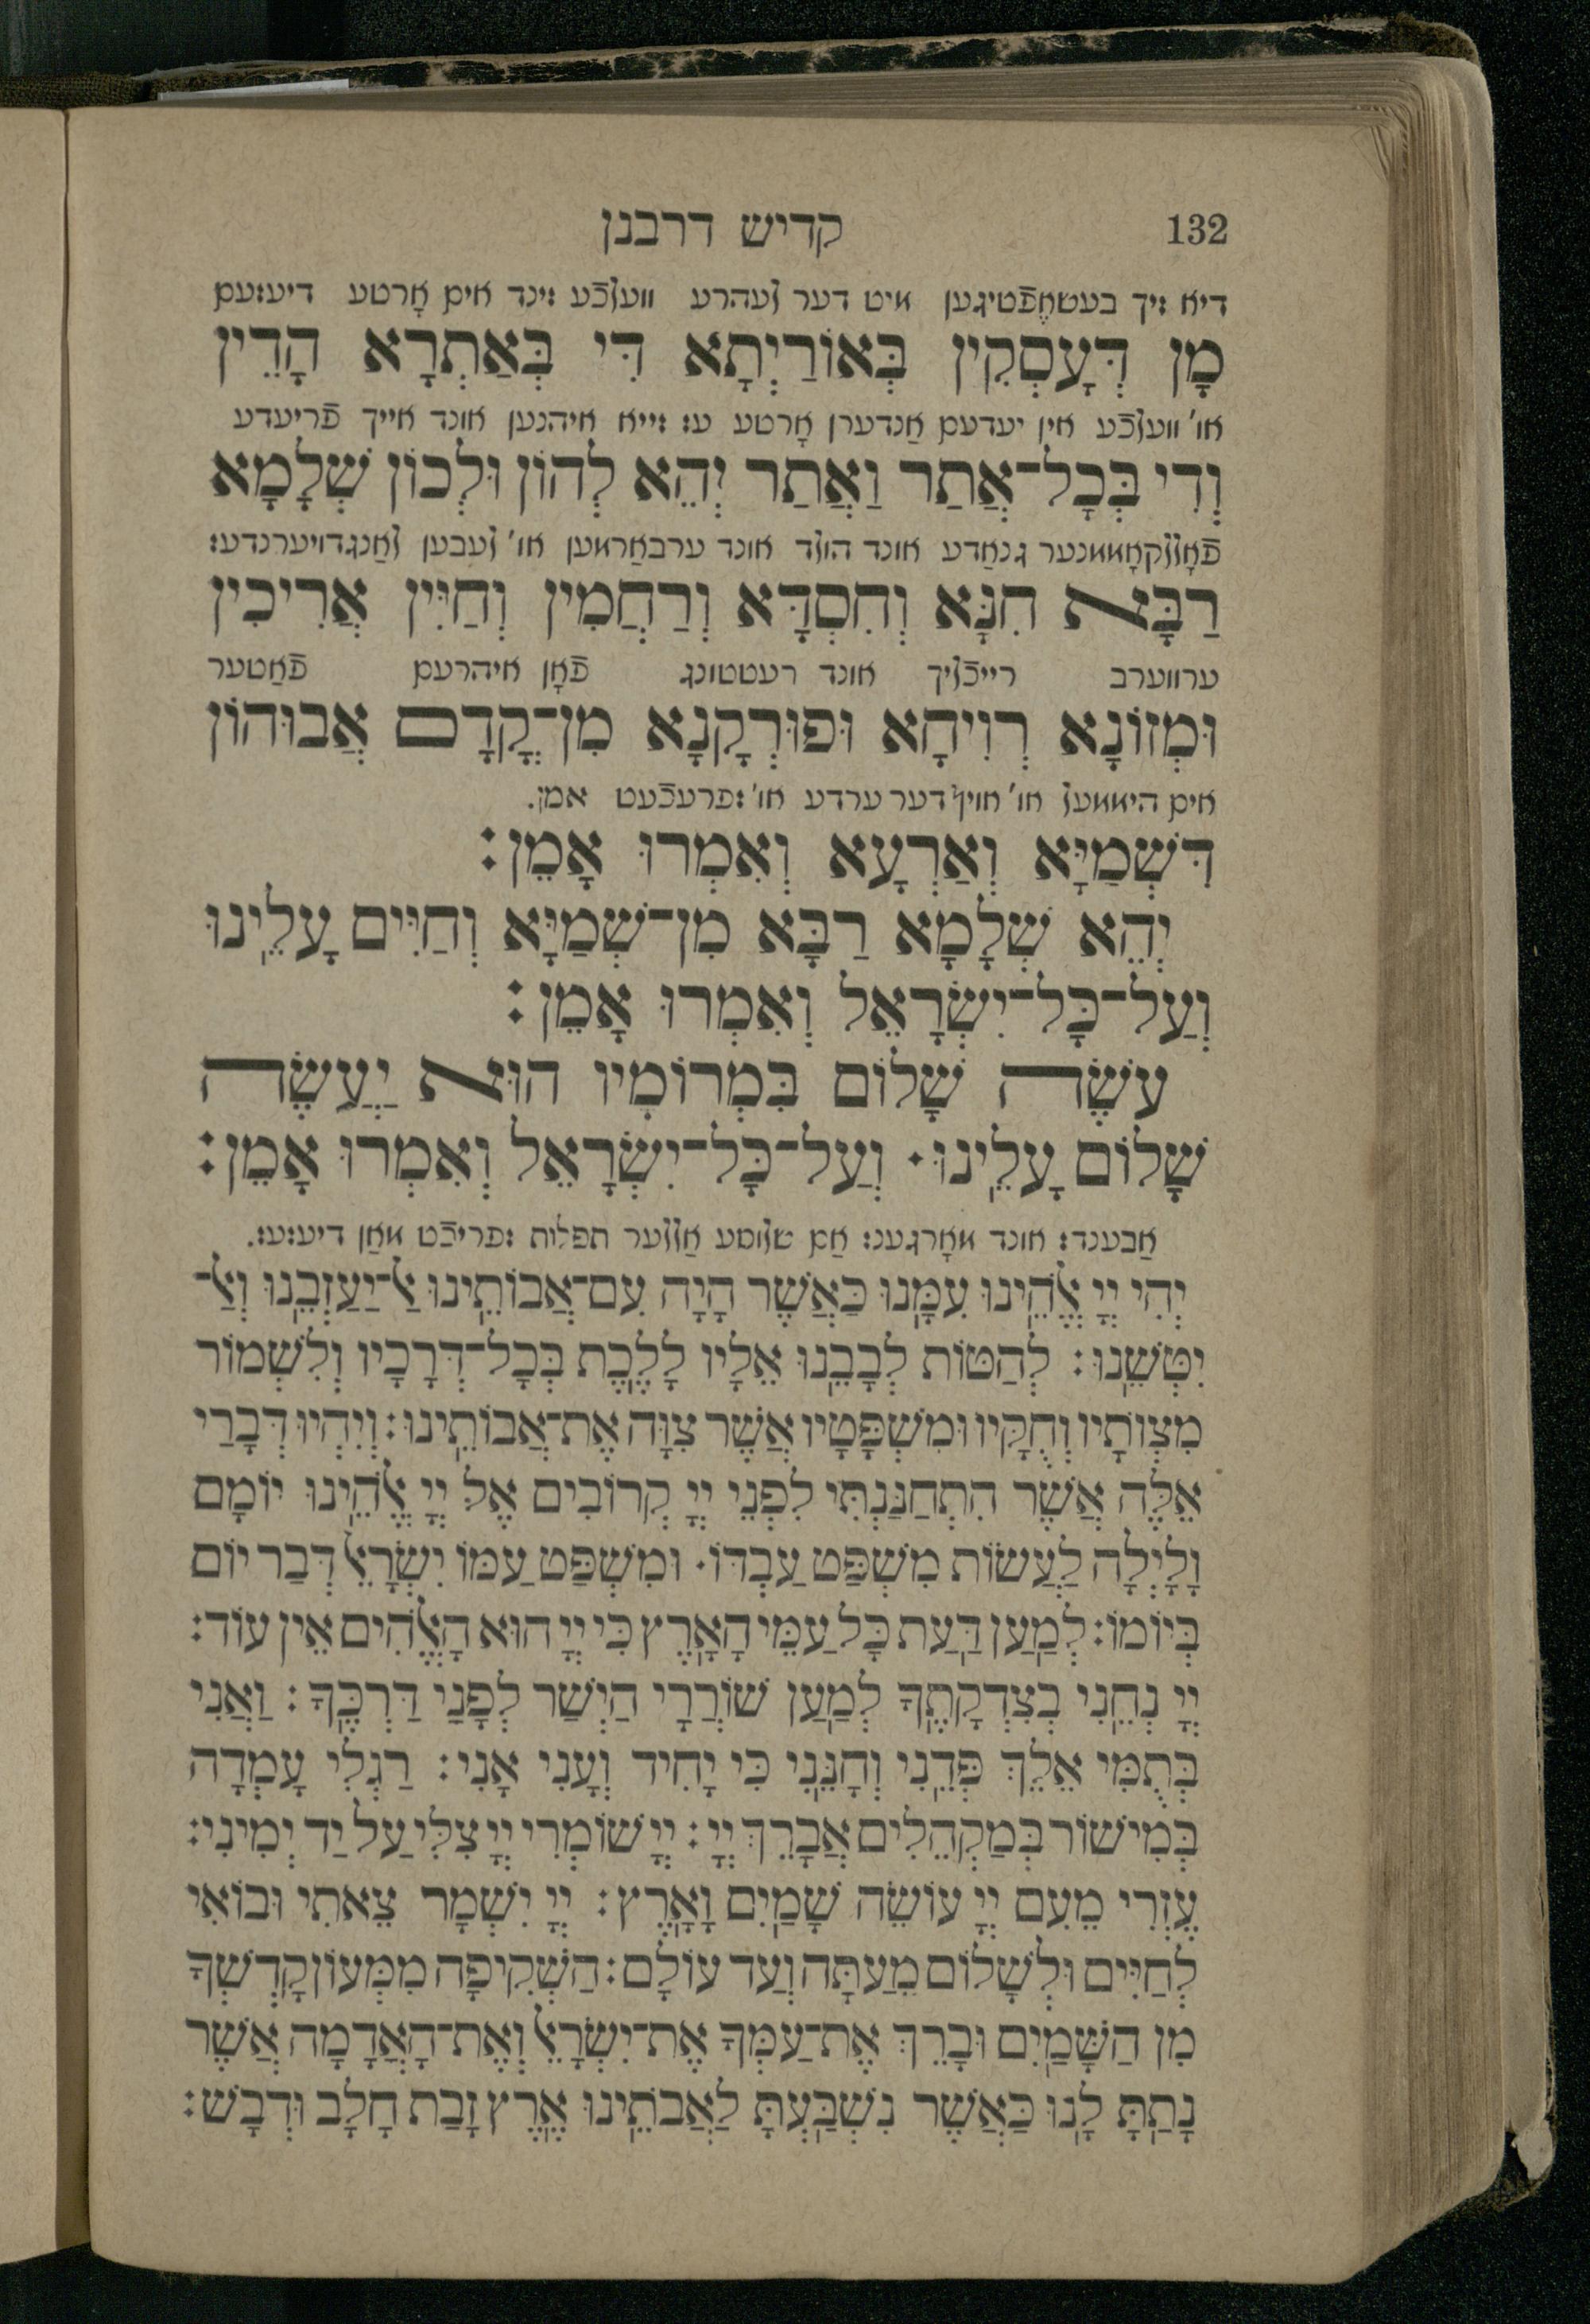 132 קדיש דרבנן
דיא זיך בעשאֶפֿטיגען מיט דער לעהרע וועלכֿע זינד אים אָרטע דיעזעם
מָן דְּעָסְקִין בְּאוֹרַיְתָא דִּי בְּאַתְרָא הָדֵין
או' וועלכֿע אין יעדעם אַנדערן אָרטע עז זייא איהנען אונד אייך פֿריעדע
וְדִי בְּכָל־אֲתַר וַאֲתַר יְהֵא לְהוֹן וּלְכוֹן שְׁלָמָא
פֿאָללקאָממנער גנאַדע אונד הולד אונד ערבאַרמען או' לעבען לאַנגדויערנדעז
רַבָּא חִנָּא וְחִסְדָּא וְרַחֲמִין וְחַיִּין אֲרִיכִין
ערווערב רייכֿליך אונד רעטטונג פֿאָן איהרעם פֿאַטער
וּמְזוֹנָא רְוִיחָא וּפוּרְקָנָא מִן־קֳדָם אֲבוּהוֹן
אים היממעל או' אויף דער ערדע או' שפרעכֿעט אמן.
דִּשְׁמַיָּא וְאַרְעָא וְאִמְרוּ אָמֵן׃
יְהֵא שְׁלָמָא רַבָּא מִן־שְׁמַיָּא וְחַיִּים עָלֵֽינוּ
וְעַל־כָּל־יִשְׂרָאֵל וְאִמְרוּ אָמֵן׃
עֹשֶׂה שָׁלוֹם בִּמְרוֹמָיו הוּא יַעֲשֶׂה
שָׁלוֹם עָלֵֽינוּ. וְעַל־כָּל־יִשְׂרָאֵל וְאִמְרוּ אָמֵן׃
אַבענדז אונד מאָרגענז אַם שלוסע אַללער תפלות שפריכֿט מאַן דיעזעז.
יְהִי יְיָ אֱלֹהֵֽינוּ עִמָּֽנוּ כַּאֲשֶׁר הָיָה עִם־אֲבוֹתֵֽינוּ אַל־יַעַזְבֵֽנוּ וְאַל־
יִטְּשֵֽׁנוּ׃ לְהַטּוֹת לְבָבֵֽנוּ אֵלָיו לָלֶֽכֶת בְּכָל־דְּרָכָיו וְלִשְׁמוֹר
מִצְוֹתָיו וְחֻקָּיו וּמִשְׁפָּטָיו אֲשֶׁר צִוָּה אֶת־אֲבוֹתֵֽינוּ׃ וְיִהְיוּ דְּבָרַי
אֵלֶּה אֲשֶׁר הִתְחַנַּנְתִּי לִפְנֵי יְיָ קְרוֹבִים אֶל יְיָ אֱלֹהֵֽינוּ יוֹמָם
וָלָֽיְלָה לַעֲשׂוֹת מִשְׁפַּט עַבְדּוֹ. וּמִשְׁפַּט עַמּוֹ יִשְׂרָאֵל דְּבַר יוֹם
בְּיוֹמוֹ׃ לְמַֽעַן דַּֽעַת כָּל עַמֵּי הָאָֽרֶץ כִּי יְיָ הוּא הָאֱלֹהִים אֵין עוֹד׃
יְיָ נְחֵֽנִי בְצִדְקָתֶֽךָ לְמַֽעַן שׁוֹרְרָי הַיְשַׁר לְפָנַי דַּרְכֶּֽךָ׃ וַאֲנִי
בְּתֻמִּי אֵלֵךְ פְּדֵֽנִי וְחָנֵּֽנִי כִּי יָחִיד וְעָנִי אָנִי׃ רַגְלִי עָמְדָה
בְּמִישׁוֹר בְּמַקְהֵלִים אֲבָרֵךְ יְיָ׃ יְיָ שׁוֹמְרִי יְיָ צִלִּי עַל יַד יְמִינִי׃
עֶזְרִי מֵעִם יְיָ עוֹשֵׂה שָׁמַֽיִם וָאָֽרֶץ׃ יְיָ יִשְׁמָר צֵאתִי וּבוֹאִי
לְחַיִּים וּלְשָׁלוֹם מֵעַתָּה וְעַד עוֹלָם׃ הַשְׁקִיפָה מִמְּעוֹן קָדְשְׁךָ
מִן הַשָּׁמַֽיִם וּבָרֵךְ אֶת־עַמְּךָ אֶת־יִשְׂרָאֵל וְאֶת־הָאֲדָמָה אֲשֶׁר
נָתַֽתָּ לָֽנוּ כַּאֲשֶׁר נִשְׁבַּֽעְתָּ לַאֲבֹתֵֽינוּ אֶֽרֶץ זָבַת חָלָב וּדְבָשׁ׃